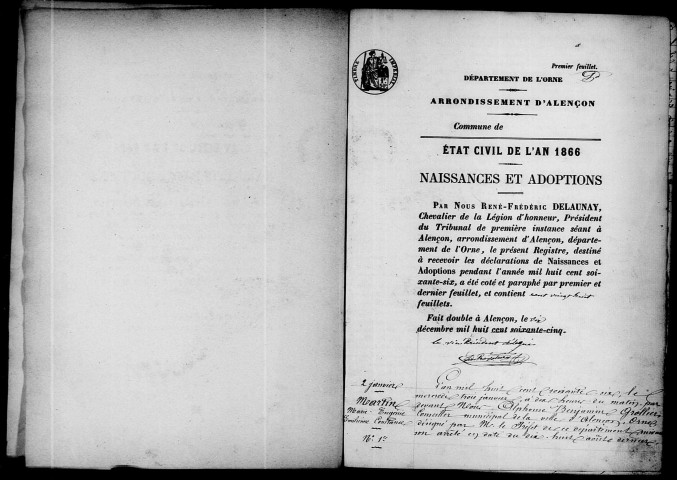 Premier feuillet.
DÉPARTEMENT DE L'ORNE
ARRONDISSEMENT D'ALENÇON
Commune de
ÉTAT CIVIL DE L'AN 1866
NAISSANCES ET ADOPTIONS
PAR NOUS RENÉ-FRÉDÉRIC DELAUNAY,
Chevalier de la Légion d'honneur, Président
du Tribunal de première instance séant à
Alençon, arrondissement d'Alençon, départe-
ment de l'Orne, le présent Registre, destiné
à recevoir les déclarations de Naissances et
Adoptions pendant l'année mil huit cent soi-
xante-six, a été coté et paraphé par premier et
dernier feuillet, et contient cent vingt huit
feuillets.
Fait double à Alençon, le six
décembre mil huit cent soixante-cinq.
2 janvier
Martin
Marie Eugénie
Constance
N° 1er
L'an mil huit cent soixante six, le
mercredi trois janvier, à dix heures du matin, par
devant Nous Alphonse Benjamin Grollier
Conseiller municipal de la ville d'Alençon, Orne
délégué par M. le Préfet de ce département suivant
son arrêté en date du dix huit août dernier